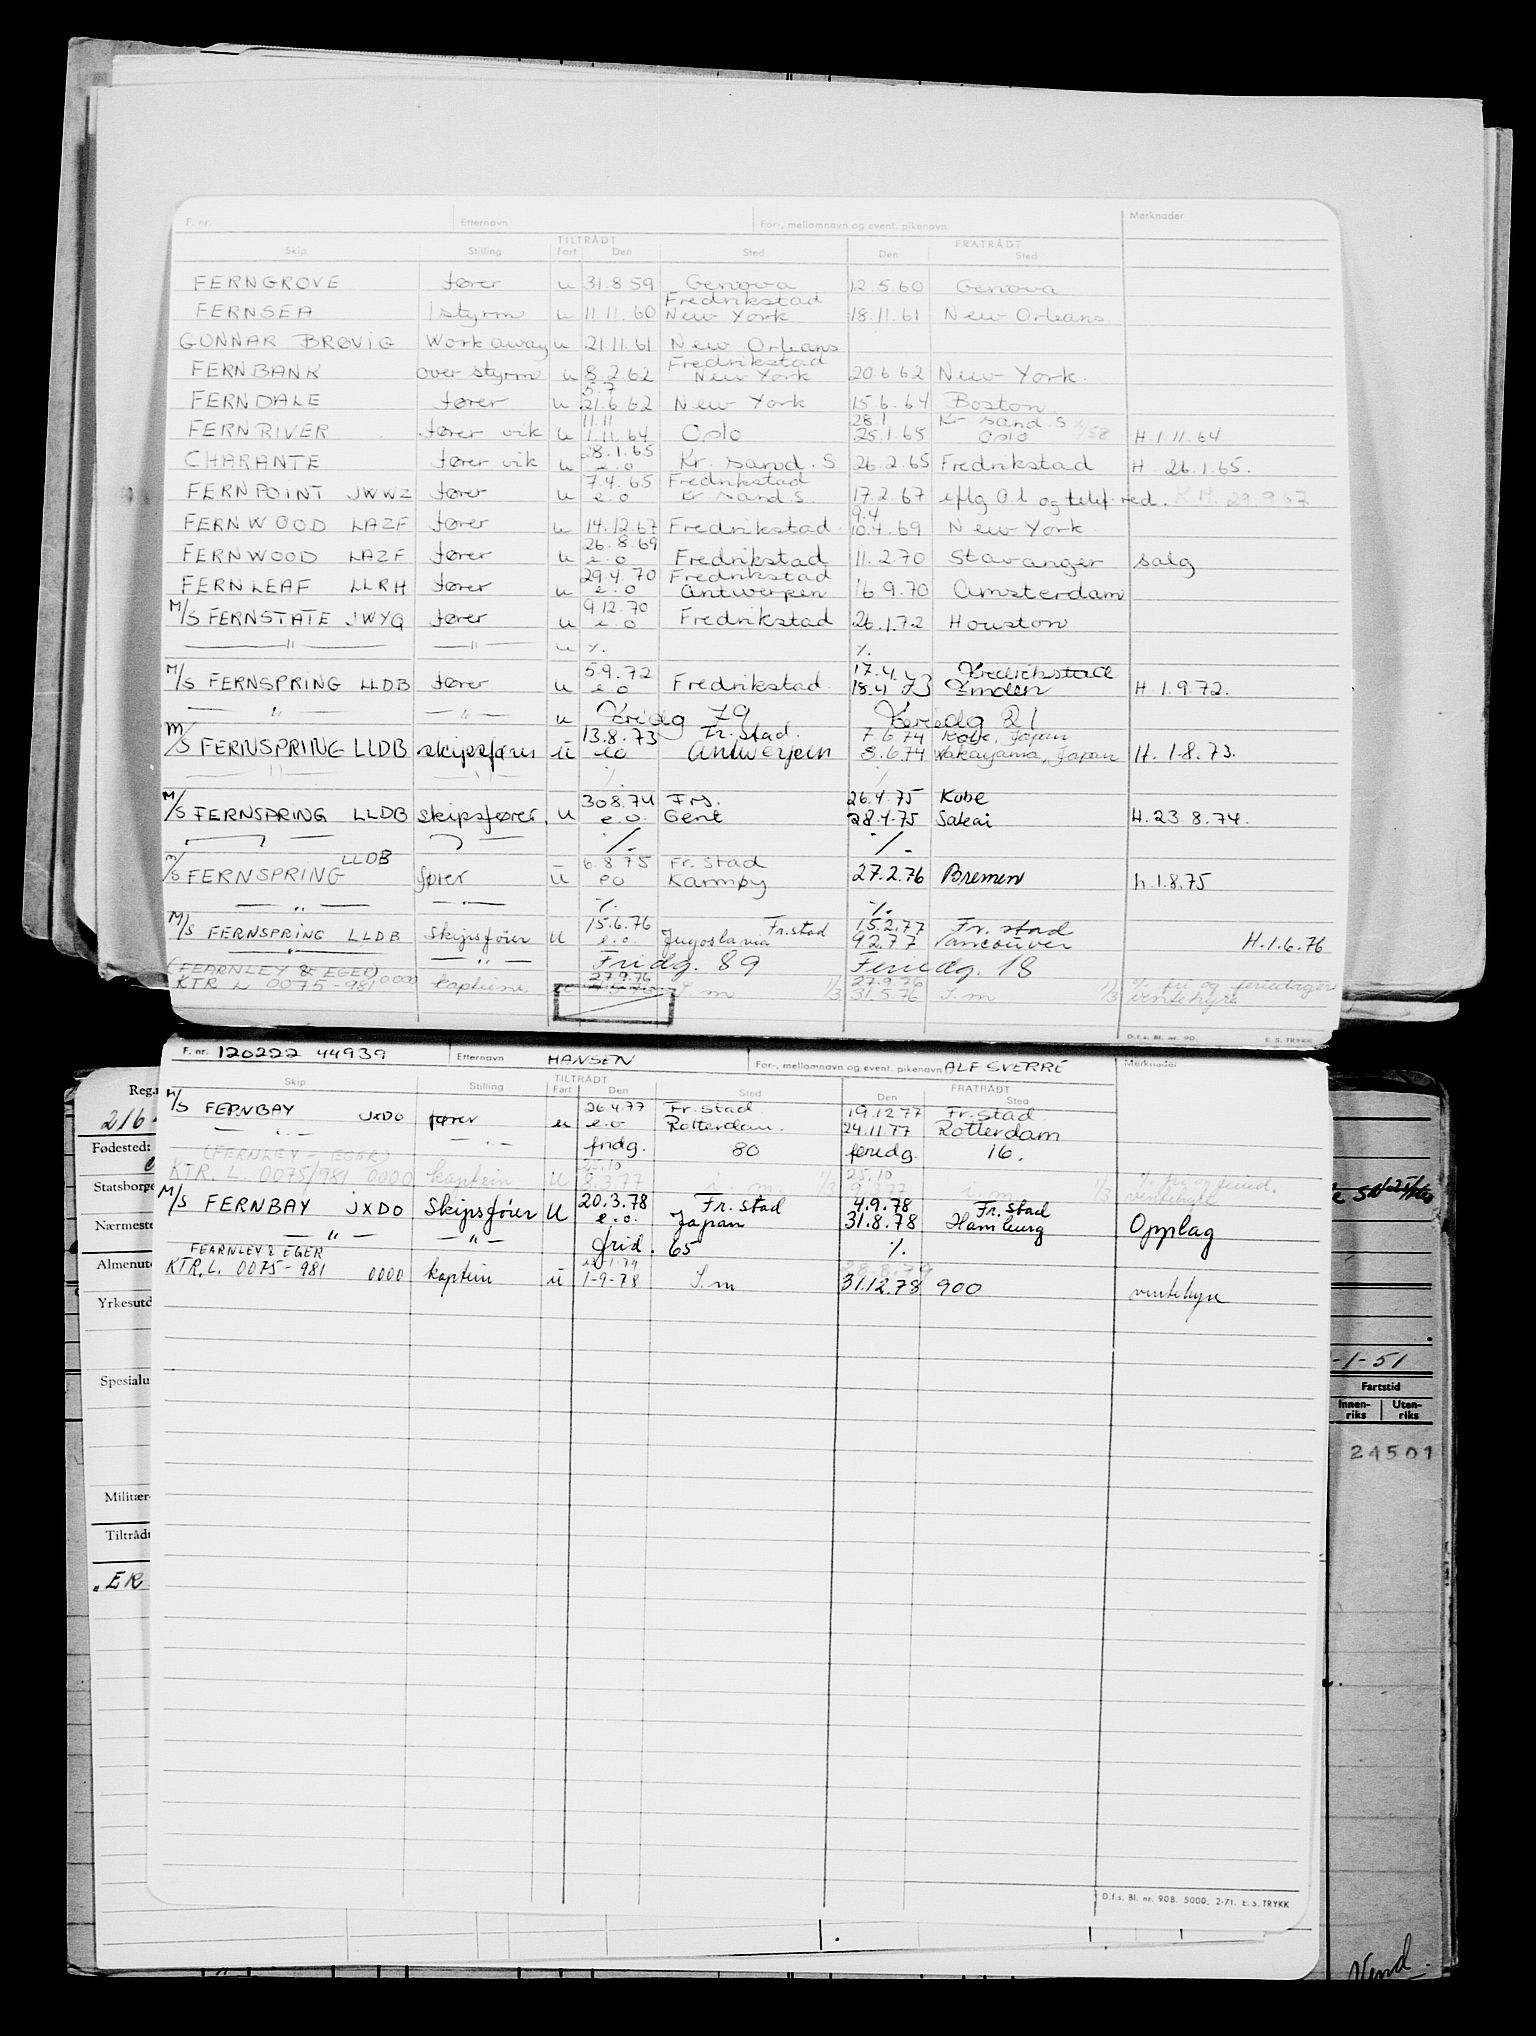 F. nr. Etternavn For-, mellomnavn og event. pikenavn Merknader
TILTRÅDT FRATRÅDT
Skip Stilling Fart Den Sted Den Sted
FERNGROVE fører u 31.8.59 Genova 12.5.60 Genova
Fredrikstad
FERNSEA 1 styrm u 11.11.60 New York 18.11.61 New Orleans
GUNNAR BRØVIG Workaway u 21.11.61 New Orleans
Fredrikstad
FERNBANK over styrm u 8.2.62 New York 20.6.62 New York.
5.7
FERNDALE fører u 21.6.62 New York 15.6.64 Boston
11.11 28.1 Kr sand. S
FERNRIVER fører vik u 1.11.64 Oslo 25.1.65 Oslo H. 1.11.64
28.1.65
CHARANTE fører vik u e.o Kr. sand. S 26.2.65 Fredrikstad H. 26.1.65.
7.4.65 Fredrikstad
FERNPOINT JWWZ fører u e.o Kr sand S. 17.2.67 iflg O.l og telef. red. K H. 29.9.67
9.4
FERNWOOD LAZF fører u 14.12.67 Fredrikstad 10.4.69 New York
26.8.69
FERNWOOD LAZF fører u e.o Fredrikstad 11.2.70 Stavanger salg
29.4.70 Fredrikstad
FERNLEAF LLRH fører u e.o Antwerpen 16 9.70 Amsterdam
9.12.70
M/S FERNSTATE JWYQ fører u e.o Fredrikstad 26.1.72 Houston
— " — — " — u ٪. ٪.
5.9.72 17.4.73 Fredrikstad
M/S FERNSPRING LLDB fører u e.o Fredrikstad 18.4 73 Emden H. 1.9.72.
— " — — " — u Fridg 79 Feriedg 21
13.8.73 Fr.stad. 7.6.74 Kobe, Japan
M/S FERNSPRING LLDB skipsfører u eo Antwerpen 8.6.74 Wakayama, Japan H. 1.8.73.
— " — — " — ٪ ٪
30.8.74 Frs. 26.4.75 Kobe
M/S FERNSPRING LLDB skipsfører. u e.o. Gent 28.4.75 Sakai H. 23.8.74.
— " — — " — ٪. ٪.
LLDB 6.8.75 Fr.stad
M/S FERNSPRING fører u eo Karmøy 27.2.76 Bremen h.1.8.75
— " — — " — ٪. ٪.
15.6.76 Fr.stad 15.2.77 Fr.stad
M/S FERNSPRING LLDB Skipsfører u e.o. Jugoslavia 9.2.77 Vancouver H.1.6.76
— " — — " — Fridg. 89 Feriedg. 18
(FEARNLEY & EGER) 0000 27.9.76 27.9.76 ٪ fri og feriedager
KTR L 0075-981 kaptein. u I.m 1/3 31.5.76 I.m 1/3 ventehyre
D.f.s. Bl. nr. 90. E. S. TRYKK
F. nr. 120222 44939 Etternavn HANSEN For-, mellomnavn og event. pikenavn ALF SVERRE Merknader
TILTRÅDT FRATRÅDT
Skip Stilling Fart Den Sted Den Sted
26.4.77 Fr.stad. 19.12.77 Fr.stad
M/S FERNBAY JXDO fører u e.o Rotterdam. 24.11.77 Rotterdam
— " — — " — fridg. 80 feriedg. 16.
(FERNLEY EGER) 25.10 25.10
KTR. L. 0075/981 0000 kaptein u 8.3.77 i. m. 1/3 i m 1/3 ٪ fri og feried. ventehyre
20.3.78 Fr. stad 4.9.78 Fr. stad
M/S FERNBAY JXDO Skipsfører u e.o. Japan 31.8.78 Hamburg Opplag
— " — — " — frid. 65 ٪.
FEARNLEY & EGER
KTR. L. 0075-981 0000 kaptein u 1-9-78 I.m 31.12.78 900 ventehyre
D.f.s. Bl. nr. 90B. 5000. 2-71. E. S. TRYKK
Reg.n
216-
Fødested:
Statsborge
Nærmeste
Almenutd
Yrkesutd
Spesialu
Militær
Tiltrådt
"ER
-1-51
Fartstid
Innen-riks Uten-riks
24501
Vend.